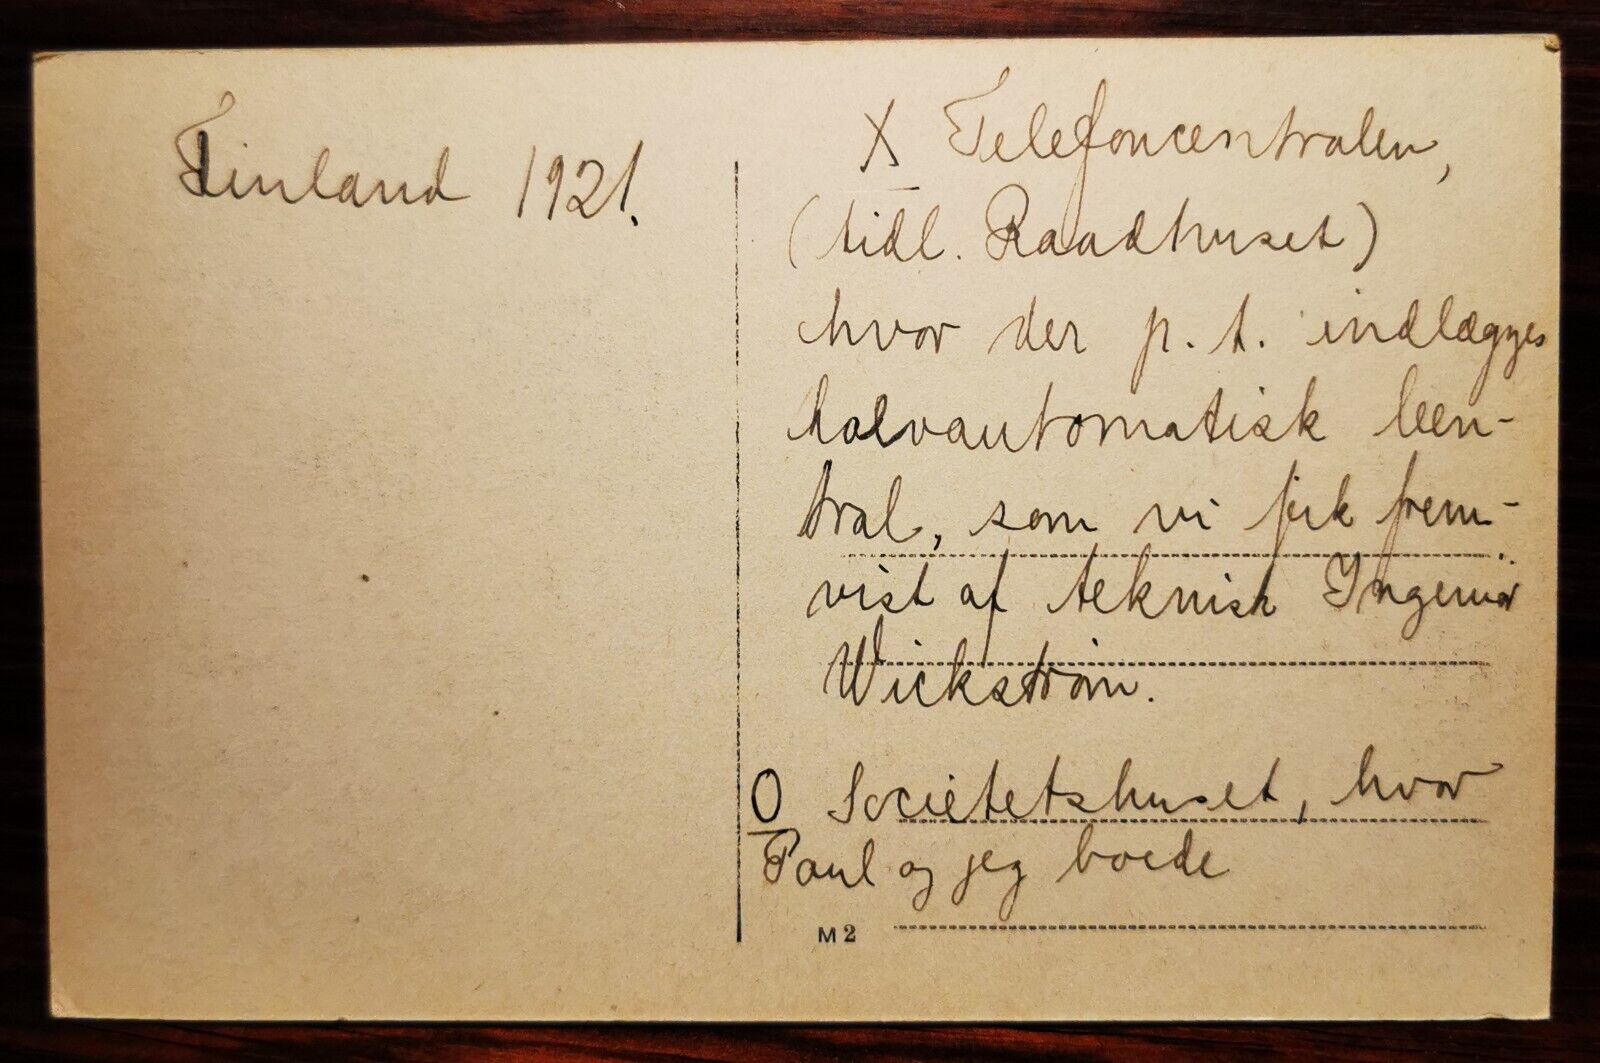 Finland 1921.
X Telefoncentralen,
(tidl. Raadhuset)
hvor der p.t. indlægges
halvautomatisk Cen-
tral, som vi fik frem-
vist af teknisk Ingeniør
Wickstrøm.
O Societetshuset, hvor
Paul og jeg boede
M2